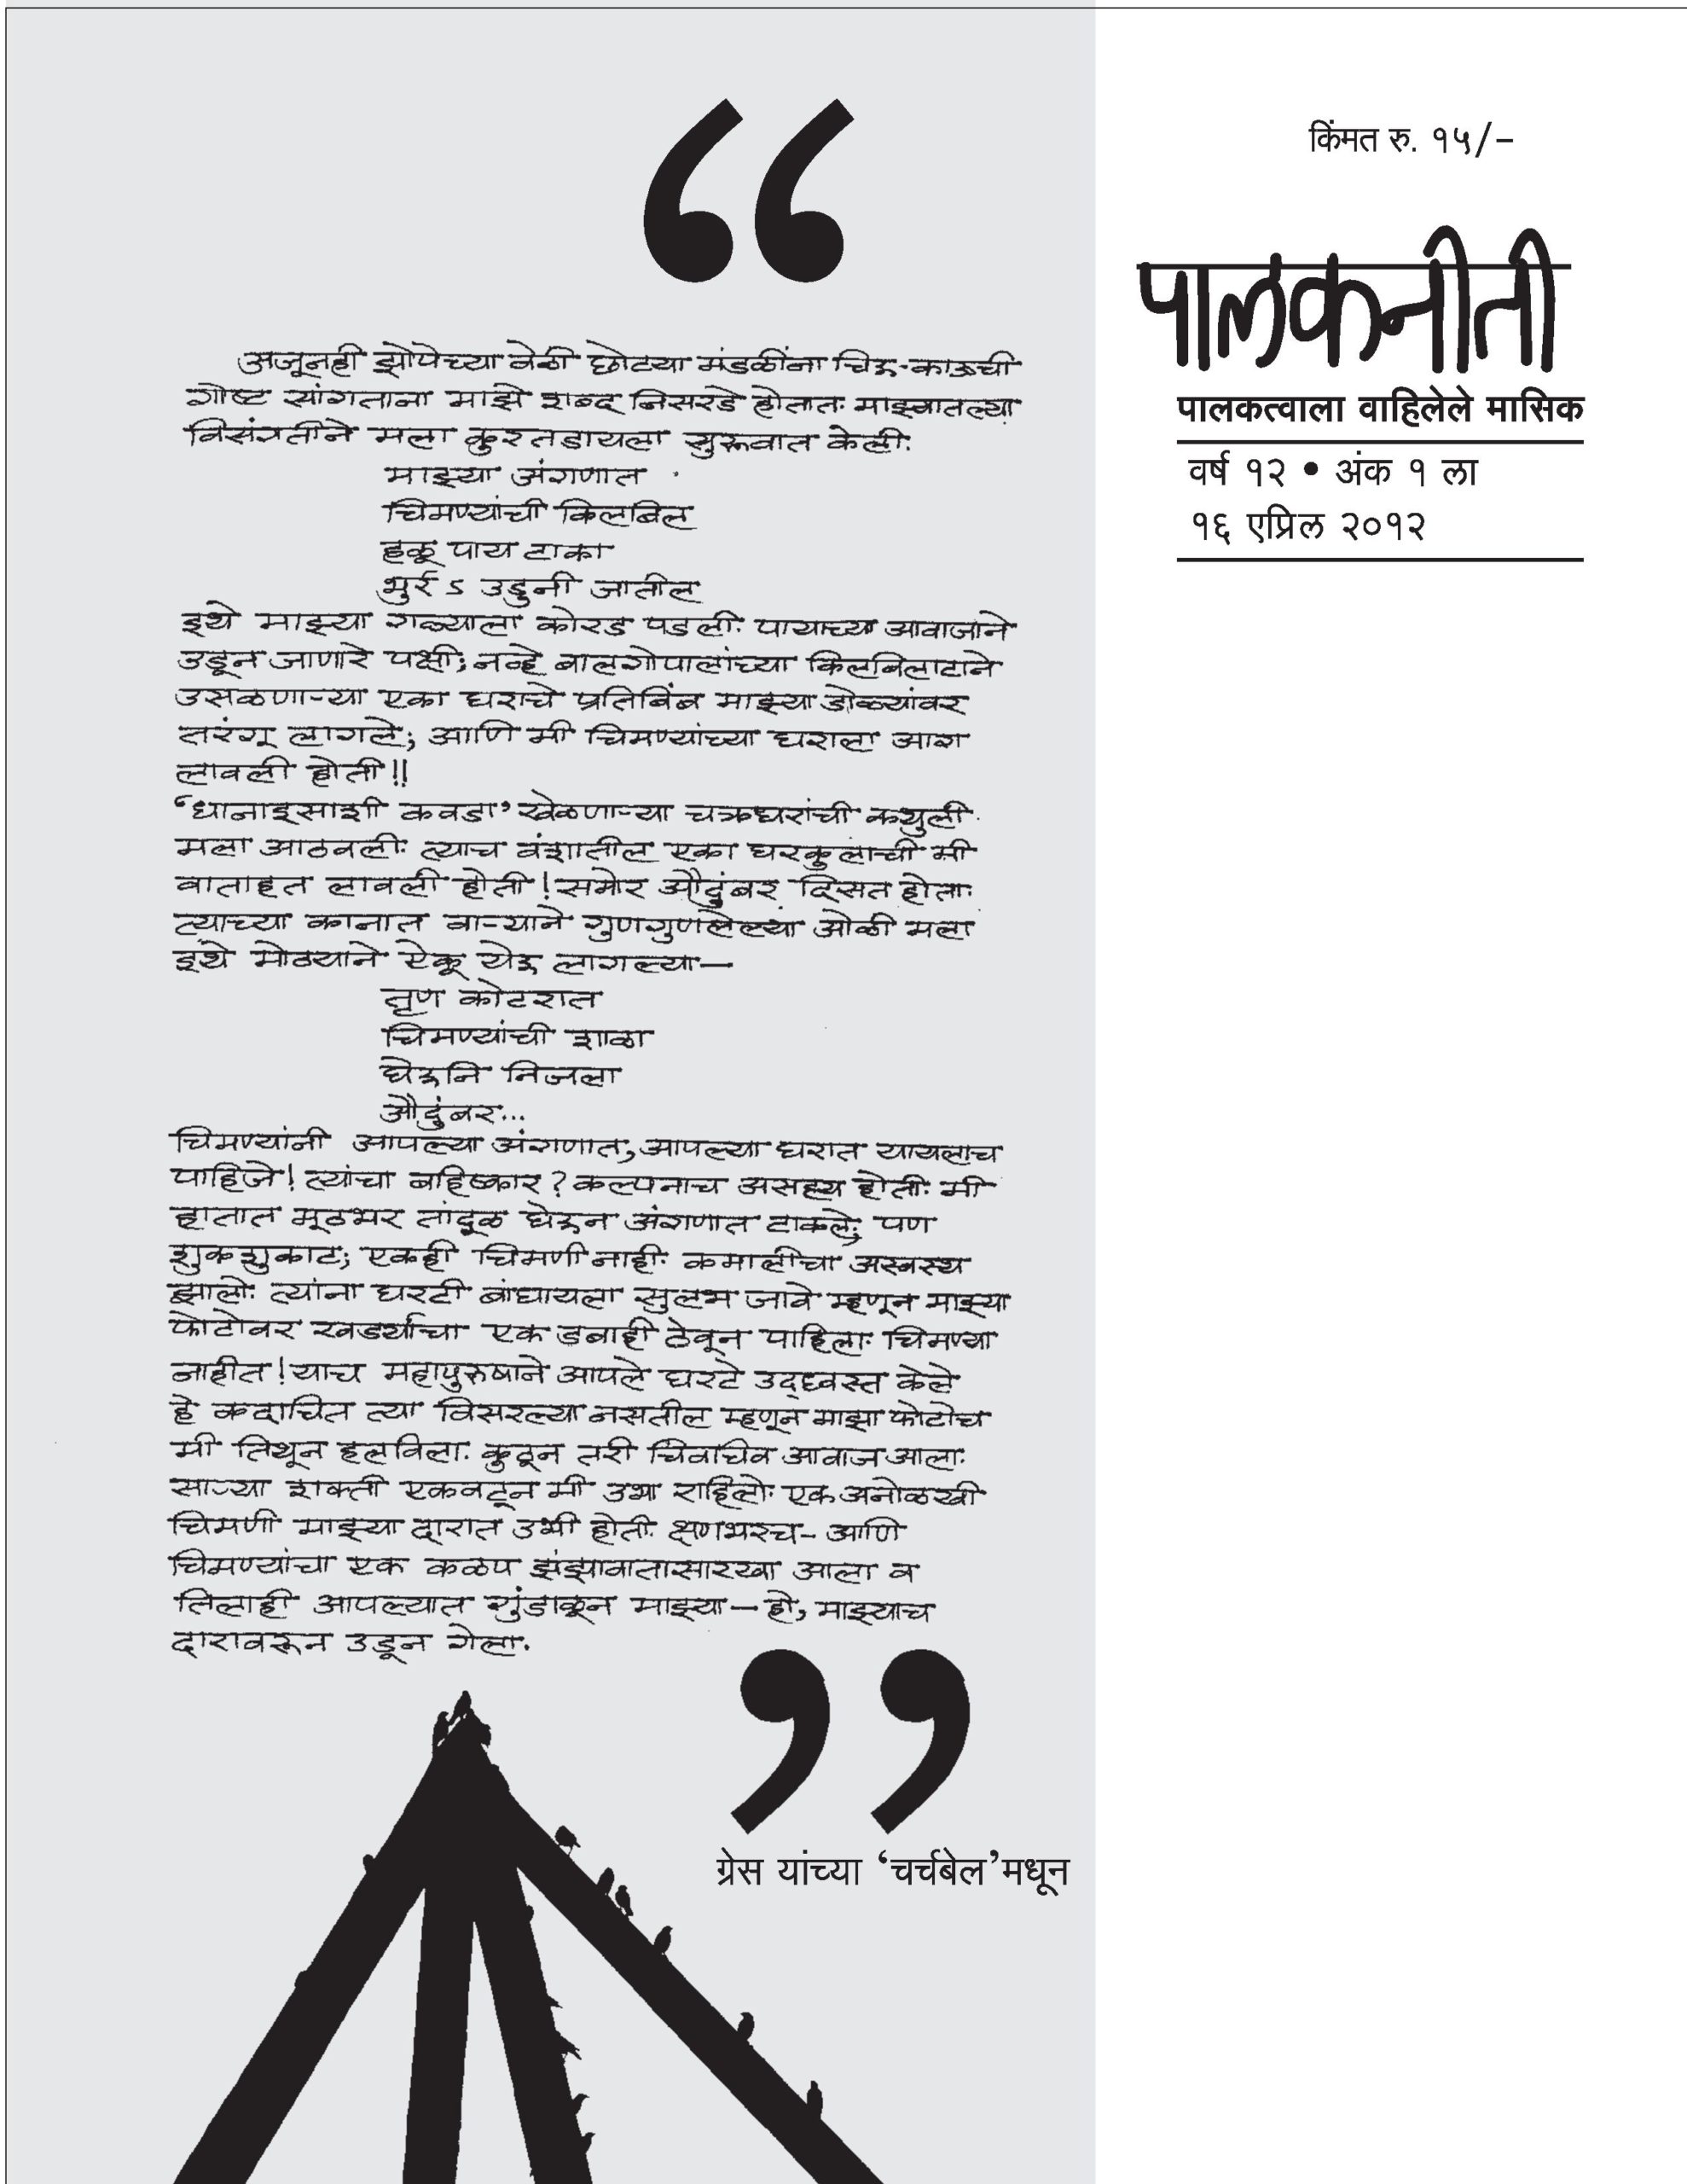 किंमत रु. १५/–
पालकनीती
पालकत्वाला वाहिलेले मासिक
वर्ष १२ • अंक १ ला
१६ एप्रिल २०१२
“
अजूनही झोपेच्या वेळी छोट्या मंडळींना चिऊ-काऊची
गोष्ट सांगताना माझे शब्द निसरडे होतात. माझ्यातल्या
विसंगतीने मला कुरतडायला सुरूवात केली.
माझ्या अंगणात
चिमण्यांची किलबिल
हळू पाय टाका
भुर्र ऽ उडुनी जातील
इथे माझ्या गळ्याला कोरड पडली. पायाच्या आवाजाने
उडून जाणारे पक्षी; नव्हे बालगोपालांच्या किलबिलाटाने
उसळणाऱ्या एका घराचे प्रतिबिंब माझ्या डोळ्यांवर
तरंगू लागले; आणि मी चिमण्यांच्या घराला आग
लावली होती!!
‘धानाइसाशी कवडा’ खेळणाऱ्या चक्रधरांची कथुली
मला आठवली. त्याच वंशातील एका घरकुलाची मी
वाताहत लावली होती! समोर औदुंबर दिसत होता.
त्याच्या कानात वाऱ्याने गुणगुणलेल्या ओळी मला
इथे मोठ्याने ऐकू येऊ लागल्या—
तृण कोटरात
चिमण्यांची शाळा
घेऊनि निजला
औदुंबर...
चिमण्यांनी आपल्या अंगणात, आपल्या घरात यायलाच
पाहिजे! त्यांचा बहिष्कार? कल्पनाच असह्य होती. मी
हातात मूठभर तांदूळ घेऊन अंगणात टाकले; पण
शुकशुकाट; एकही चिमणी नाही. कमालीचा अस्वस्थ
झालो. त्यांना घरटी बांधायला सुलभ जावे म्हणून माझ्या
फोटोवर खर्ड्याचा एक डबाही ठेवून पाहिला. चिमण्या
नाहीत! याच महापुरुषाने आपले घरटे उद्ध्वस्त केले
हे कदाचित त्या विसरल्या नसतील म्हणून माझा फोटोच
मी तिथून हलविला. कुठून तरी चिवचिव आवाज आला.
साऱ्या शक्ती एकवटून मी उभा राहिलो. एक अनोळखी
चिमणी माझ्या दारात उभी होती. क्षणभरच- आणि
चिमण्यांचा एक कळप झंझावातासारखा आला व
तिलाही आपल्यात गुंडाळून माझ्या — हो, माझ्याच
दारावरून उडून गेला.
”
ग्रेस यांच्या ‘चर्चबेल’मधून